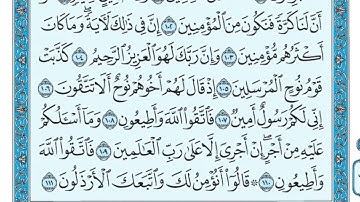 أَنَّ لَنَا كَرَّةً فَنَكُونَ مِنَ ٱلْمُؤْمِنِينَ ١٠٢ إِنَّ فِي ذَٰلِكَ لَأٓيَةً ۖ وَمَا كَانَ
أَكْثَرُهُم مُّؤْمِنِينَ ١٠٣ وَإِنَّ رَبَّكَ لَهُوَ ٱلْعَزِيزُ ٱلرَّحِيمُ ١٠٤ كَذَّبَتْ
قَوْمُ نُوحٍ ٱلْمُرْسَلِينَ ١٠٥ إِذْ قَالَ لَهُمْ أَخُوهُمْ نُوحٌ أَلَا تَتَّقُونَ ١٠٦
إِنِّي لَكُمْ رَسُولٌ أَمِينٌ ١٠٧ فَٱتَّقُوا۟ ٱللَّهَ وَأَطِيعُونِ ١٠٨ وَمَآ أَسْـَٔلُكُمْ
عَلَيْهِ مِنْ أَجْرٍ ۖ إِنْ أَجْرِيَ إِلَّا عَلَىٰ رَبِّ ٱلْعَـٰلَمِينَ ١٠٩ فَٱتَّقُوا۟ ٱللَّهَ
وَأَطِيعُونِ ١١٠ ۞ قَالُوٓا۟ أَنُؤْمِنُ لَكَ وَٱتَّبَعَكَ ٱلْأَرْذَلُونَ ١١١